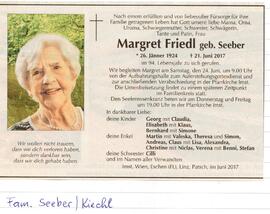 Nach einem erfüllten und von liebevoller Fürsorge für ihre
Familie getragenen Leben hat Gott unsere liebe Mama, Oma,
Uroma, Schwiegermutter, Schwester, Schwägerin,
Tante und Patin, Frau
Margret Friedl geb. Seeber
* 26. Jänner 1924 † 21. Juni 2017
im 94. Lebensjahr zu sich gerufen.
Wir begleiten Margret am Samstag, den 24. Juni, um 9.00 Uhr
von der Aufbahrungshalle zum Auferstehungsgottesdienst und
zur anschließenden Verabschiedung in die Pfarrkirche.
Die Urnenbeisetzung findet zu einem späteren Zeitpunkt
im Familienkreis statt.
Den Seelenrosenkranz beten wir am Donnerstag und Freitag
um 19.00 Uhr in der Pfarrkirche Igls.
In Liebe und Dankbarkeit:
deine Kinder Georg mit Claudia,
Elisabeth mit Klaus,
Bernhard mit Simone
deine Enkel Martin mit Valeska, Theresa und Simon,
Andreas, Claus mit Lisa, Alexandra,
Christine mit Niclas, Verena mit Benni, Stefan
deine Schwester Cilli
und im Namen aller Verwandten
Wir wollen nicht trauern,
dass wir dich verloren haben,
sondern dankbar sein,
dass wir dich gehabt haben.
Innst, Wien, Eschen (FL), Linz, Patsch, im Juni 2017
Fam. Seeber/Kiechl